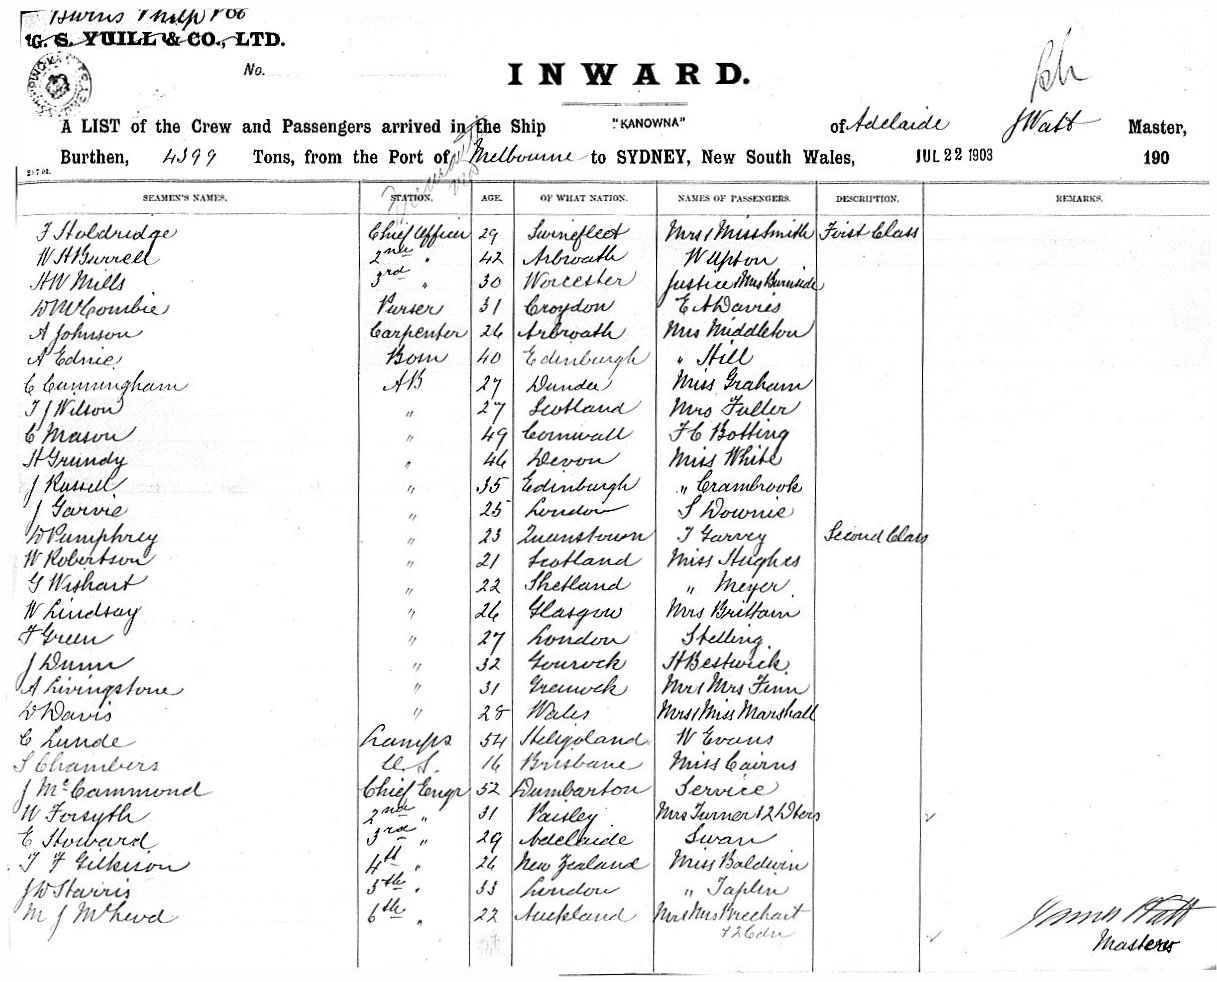 Burns Philp & Co
G. S. YUILL & CO., LTD.
No.
INWARD.
A LIST of the Crew and Passengers arrived in the Ship "KANOWNA" of Adelaide J Watt Master,
Burthen, 4399 Tons, from the Port of Melbourne to SYDNEY, New South Wales, JUL 22 1903 190
SEAMEN'S NAMES. STATION. AGE. OF WHAT NATION. NAMES OF PASSENGERS. DESCRIPTION. REMARKS.
F Holdridge Chief Officer 29 Swinefleet Mrs & Miss Smith First Class
W H Burrell 2nd " 42 Arbroath W Upton
H W Mills 3rd " 30 Worcester Justice & Mrs Burnside
D McCombie Purser 31 Croydon E A Davies
A Johnson Carpenter 26 Arbroath Mrs Middleton
A Ednie Bosn 40 Edinburgh " Hill
C Cunningham AB 27 Dundee Miss Graham
T J Wilson " 27 Scotland Mrs Fuller
C Mason " 49 Cornwall F C Botting
H Grundy " 46 Devon Miss White
J Russell " 35 Edinburgh " Crambrook
J Garvie " 25 London S Downie
D Pumphrey " 23 Queenstown T Garvey Second Class
W Robertson " 21 Scotland Miss Hughes
G Wishart " 22 Shetland " Meyer
W Lindsay " 26 Glasgow Mrs Brittain
F Green " 27 London Stelling
J Dunn " 32 Gourock H Beswick
A Livingstone " 31 Greenock Mr & Mrs Finn
D Davis " 28 Wales Mrs & Miss Marshall
C Lunde Lamps 54 Heligoland W Evans
S Chambers O.S. 16 Brisbane Miss Cairns
J McCammond Chief Engr 52 Dumbarton Service
W Forsyth 2nd " 31 Paisley Mrs Turner & 2 Dters
E Howard 3rd " 29 Adelaide Swan
T F Gilkison 4th " 26 New Zealand Miss Baldwin
J W Harris 5th " 33 London " Taplin
M J 6th " 22 Auckland Mr & Mrs Brechart
& 2 Cdn
James Watt
Master